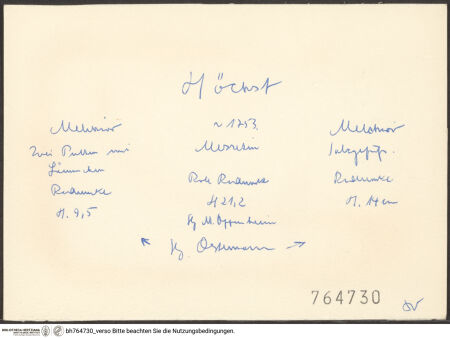 Höchst
Melchior
Zwei Putten mit
Lämmchen
Radmarke
H. 9,5
~ 1753.
Rote Radmarke
H 21,2
Slg M. Oppenheim
Melchior
Radmarke
H. 14 cm
Slg. Ostermann
764730
BIBLIOTHECA HERTZIANA
bh764730_verso Bitte beachten Sie die Nutzungsbedingungen.